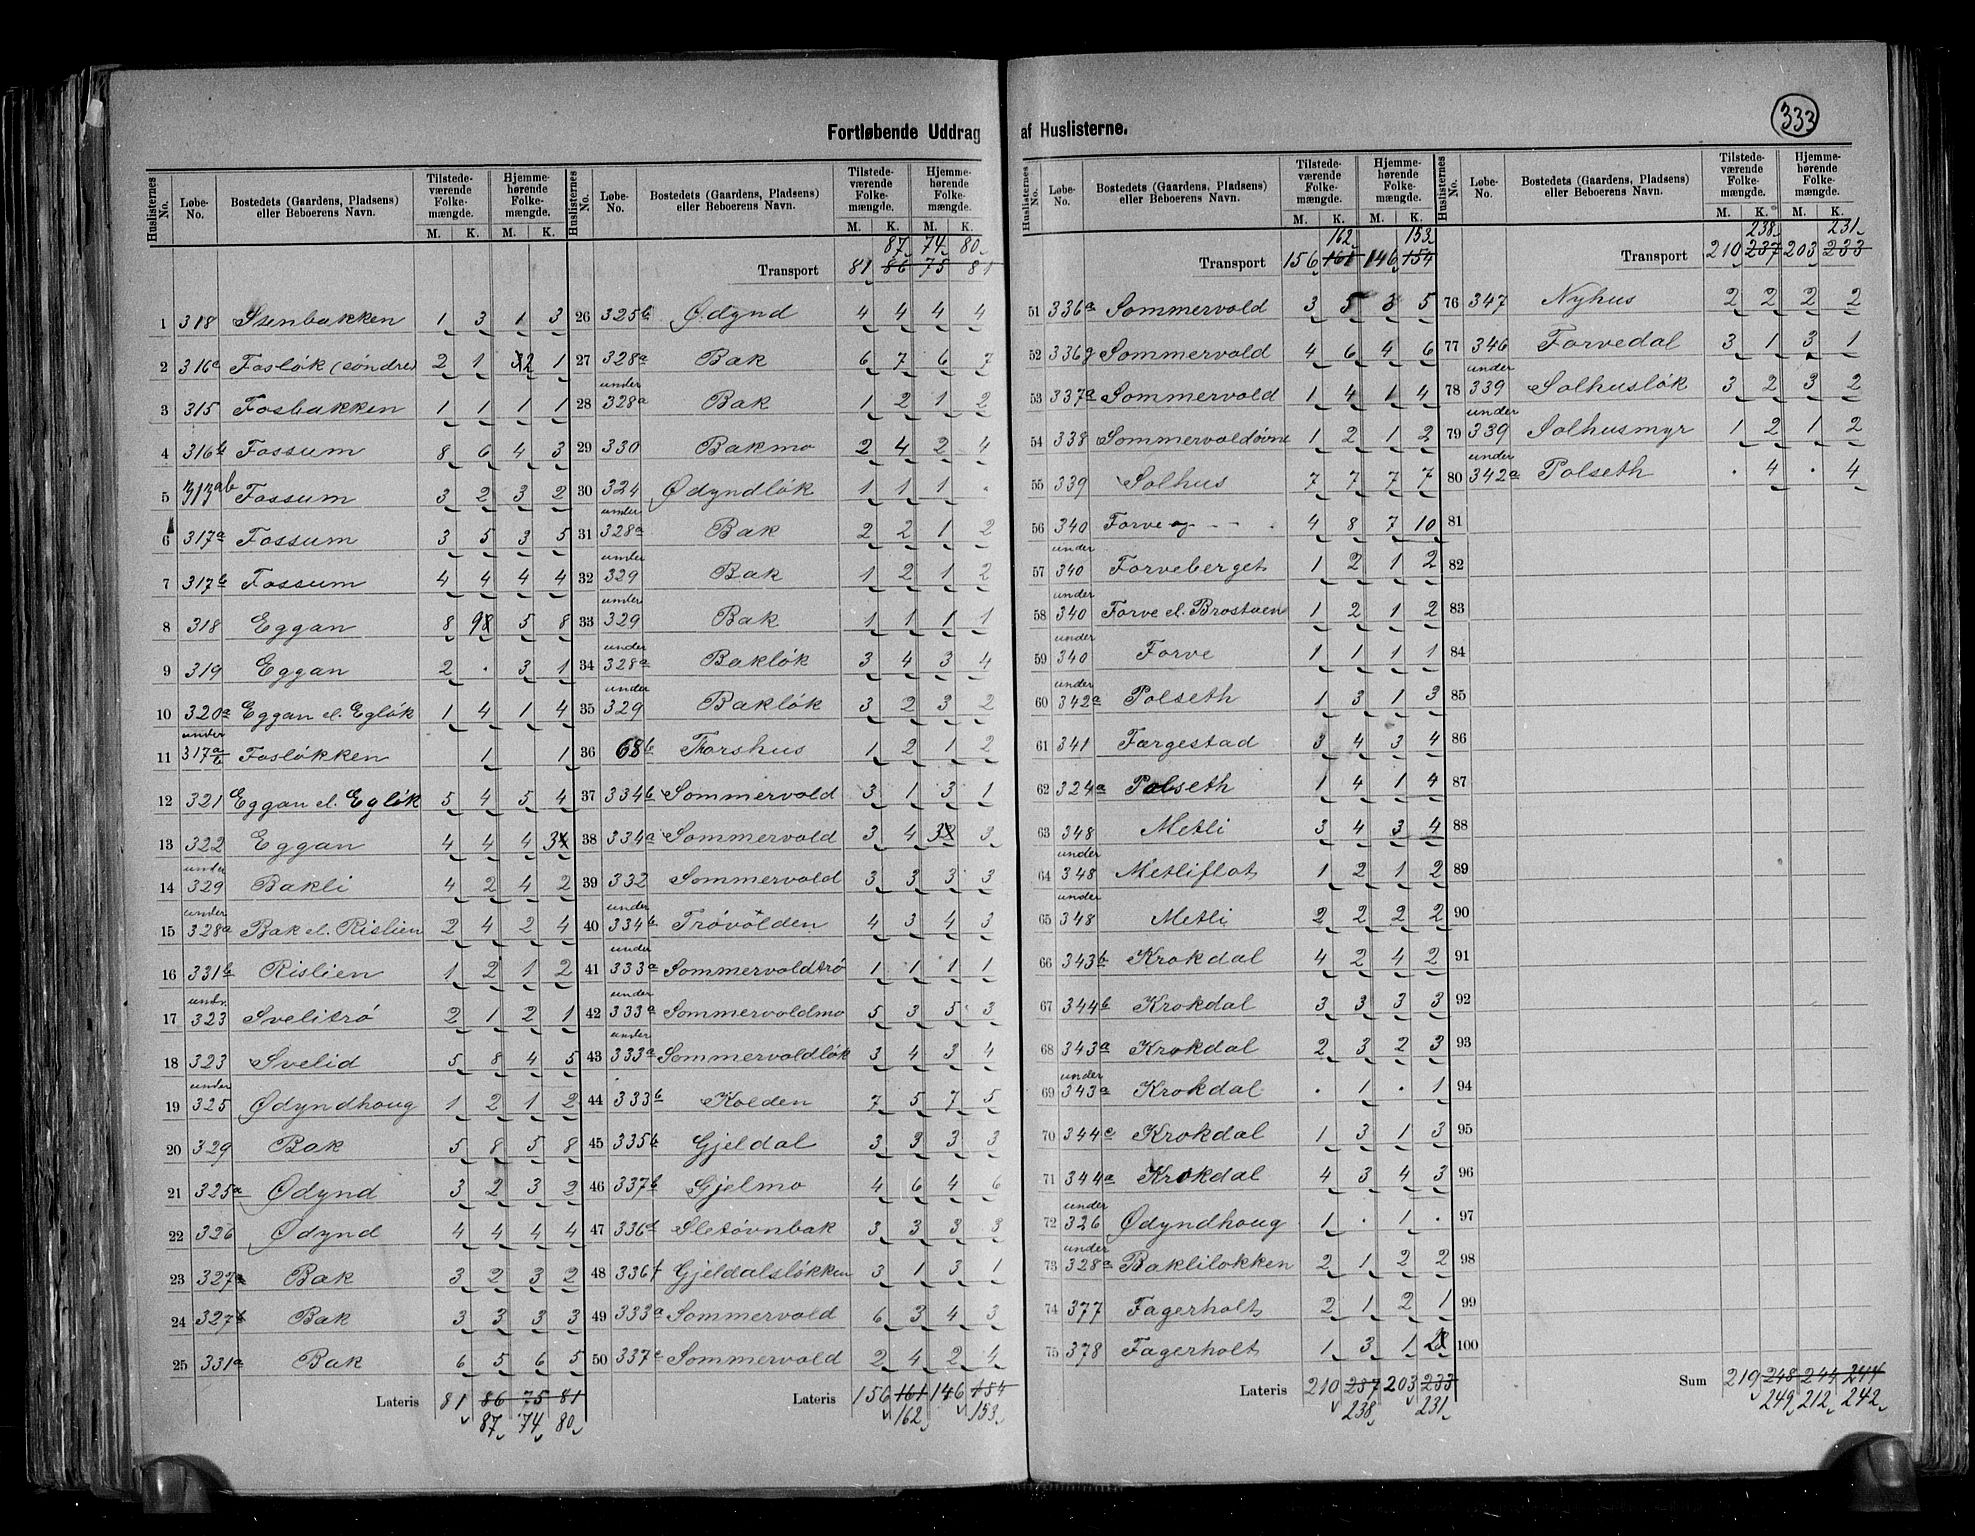 333
Fortløbende Uddrag af Huslisterne.
Huslisternes No. | Løbe-No. | Bostedets (Gaardens, Pladsens) eller Beboerens Navn. | Tilstedeværende Folkemængde. M. K. | Hjemmehørende Folkemængde. M. K.
1 318 Stenbakken 1 3 1 3
2 316a Fosløk (søndre) 2 1 2 1
3 315 Fosbakken 1 1 1 1
4 316b Fossum 8 6 4 3
5 313ab Fossum 3 2 3 2
6 317a Fossum 3 5 3 5
7 317b Fossum 4 4 4 4
8 318 Eggan 8 9 5 8
9 319 Eggan 2 . 3 1
10 320a Eggan el. Egløk 1 4 1 4
11 under 317a/b Fosløkken 1 1
12 321 Eggan el. Egløk 5 4 5 4
13 322 Eggan 4 4 4 3
14 under 329 Bakli 4 2 4 2
15 under 328a Bak el. Rislien 2 4 2 4
16 331b Rislien 1 2 1 2
17 undr. 323 Svelitrø 2 1 2 1
18 323 Svelid 5 8 4 5
19 under 325 Ødyndhoug 1 2 1 2
20 329 Bak 5 8 5 8
21 325a Ødynd 3 2 3 2
22 326 Ødynd 4 4 4 4
23 327a Bak 3 2 3 2
24 327b Bak 3 3 3 3
25 331a Bak 6 5 6 5
Lateris 81 86 75 81
87 74 80
87 74 80
Transport 81 86 75 81
26 325b Ødynd 4 4 4 4
27 328a Bak 6 7 6 7
28 under 328a Bak 1 2 1 2
29 330 Bakmo 2 4 2 4
30 324 Ødyndløk 1 1 1 .
31 under 328a Bak 2 2 1 2
32 under 329 Bak 1 2 1 2
33 under 329 Bak 1 1 1 1
34 under 328a Bakløk 3 4 3 4
35 under 329 Bakløk 3 2 3 2
36 68b Thorshus 1 2 1 2
37 334b Sommervold 3 1 3 1
38 334a Sommervold 3 4 3 3
39 332 Sommervold 3 3 3 3
40 under 334b Trøvolden 4 3 4 3
41 under 333a Sommervoldtrø 1 1 1 1
42 under 333a Sommervoldmo 5 3 5 3
43 under 333a Sommervoldløk 3 4 3 4
44 333b Kolden 7 5 7 5
45 335b Gjeldal 3 3 3 3
46 337b Gjelmo 4 6 4 6
47 336d Sletøvnbak 3 3 3 3
48 336f Gjeldalsløkken 3 1 3 1
49 333a Sommervold 6 3 4 3
50 337c Sommervold 2 4 2 4
Lateris 156 161 146 154
162 153
162 153
Transport 156 161 146 154
51 336a Sommervold 3 5 3 5
52 336g Sommervold 4 6 4 6
53 337a Sommervold 1 4 1 4
54 338 Sommervoldøvne 1 2 1 2
55 339 Solhus 7 7 7 7
56 340 Forve og - - . 4 8 7 10
57 under 340 Forveberget 1 2 1 2
58 under 340 Forve el. Brostuen 1 2 1 2
59 under 340 Forve 1 1 1 1
60 under 342a Polseth 1 3 1 3
61 341 Færgestad 3 4 3 4
62 324a Polseth 1 4 1 4
63 348 Metli 3 4 3 4
64 under 348 Metliflot 1 2 1 2
65 under 348 Metli 2 2 2 2
66 343b Krokdal 4 2 4 2
67 344b Krokdal 3 3 3 3
68 343a Krokdal 2 3 2 3
69 under 343a Krokdal . 1 . 1
70 344c Krokdal 1 3 1 3
71 344a Krokdal 4 3 4 3
72 under 326 Ødyndhoug 1 . 1 .
73 under 328a Baklilokken 2 1 2 2
74 377 Fagerholt 2 1 2 1
75 378 Fagerholt 1 3 1
Lateris 210 237 203 233
238 231
238 231
Transport 210 237 203 233
76 347 Nyhus 2 2 2 2
77 346 Forvedal 3 1 3 1
78 under 339 Solhusløk 3 2 3 2
79 under 339 Solhusmyr 1 2 1 2
80 under 342a Polseth . 4 . 4
81
82
83
84
85
86
87
88
89
90
91
92
93
94
95
96
97
98
99
100
Sum 219 248 244
249 212 242